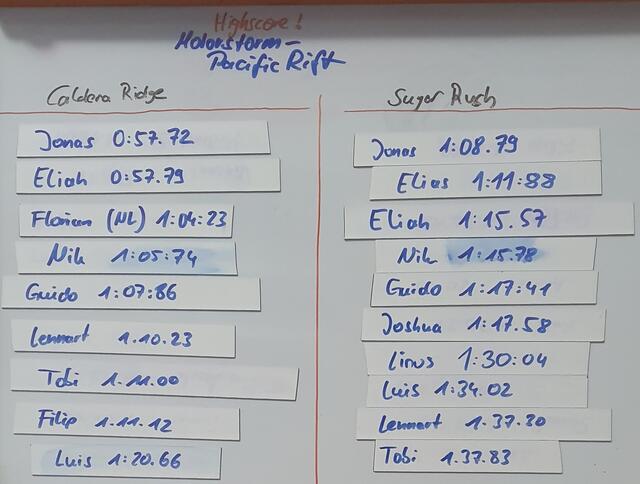 Highscore!
Motorstorm-
Pacific Rift
Caldera Ridge
Jonas 0:57.72
Eliah 0:57.79
Florian (NL) 1:04:23
Nik 1:05:74
Guido 1:07:86
Lennart 1.10.23
Tobi 1.11.00
Filip 1.11.12
Luis 1:20.66
Sugar Rush
Jonas 1:08.79
Elias 1:11:88
Eliah 1:15.57
Nik 1:15.78
Guido 1:17:41
Joshua 1:17.58
Linus 1:30:04
Luis 1:34.02
Lennart 1.37.30
Tobi 1.37.83